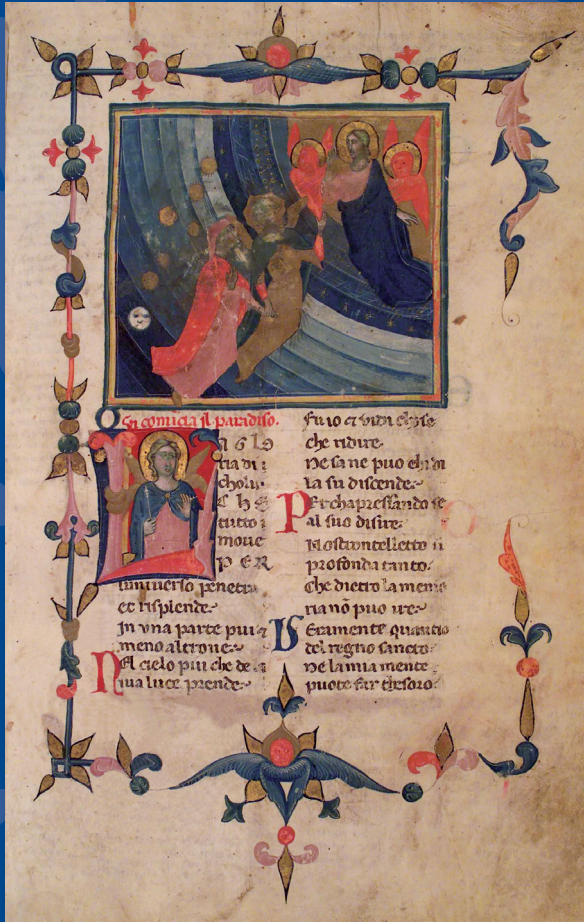 Qui comicia il paradiso.
LA GLO
ria di
cholui
CHE
tutto
moue
PER
luniuerso penetra
et risplende
In vna parte piu &
meno altroue
Nel cielo piu che de
sua luce prende
Fu io & vidi chose
che ridire
Ne sa ne puo chi di
la su discende
Perchapressando se
al suo disire
Nostrontelletto si
profonda tanto
Che dietro la memo
ria nō puo ire
Veramente quantio
del regno sancto
Ne la mia mente
puote far thesoro